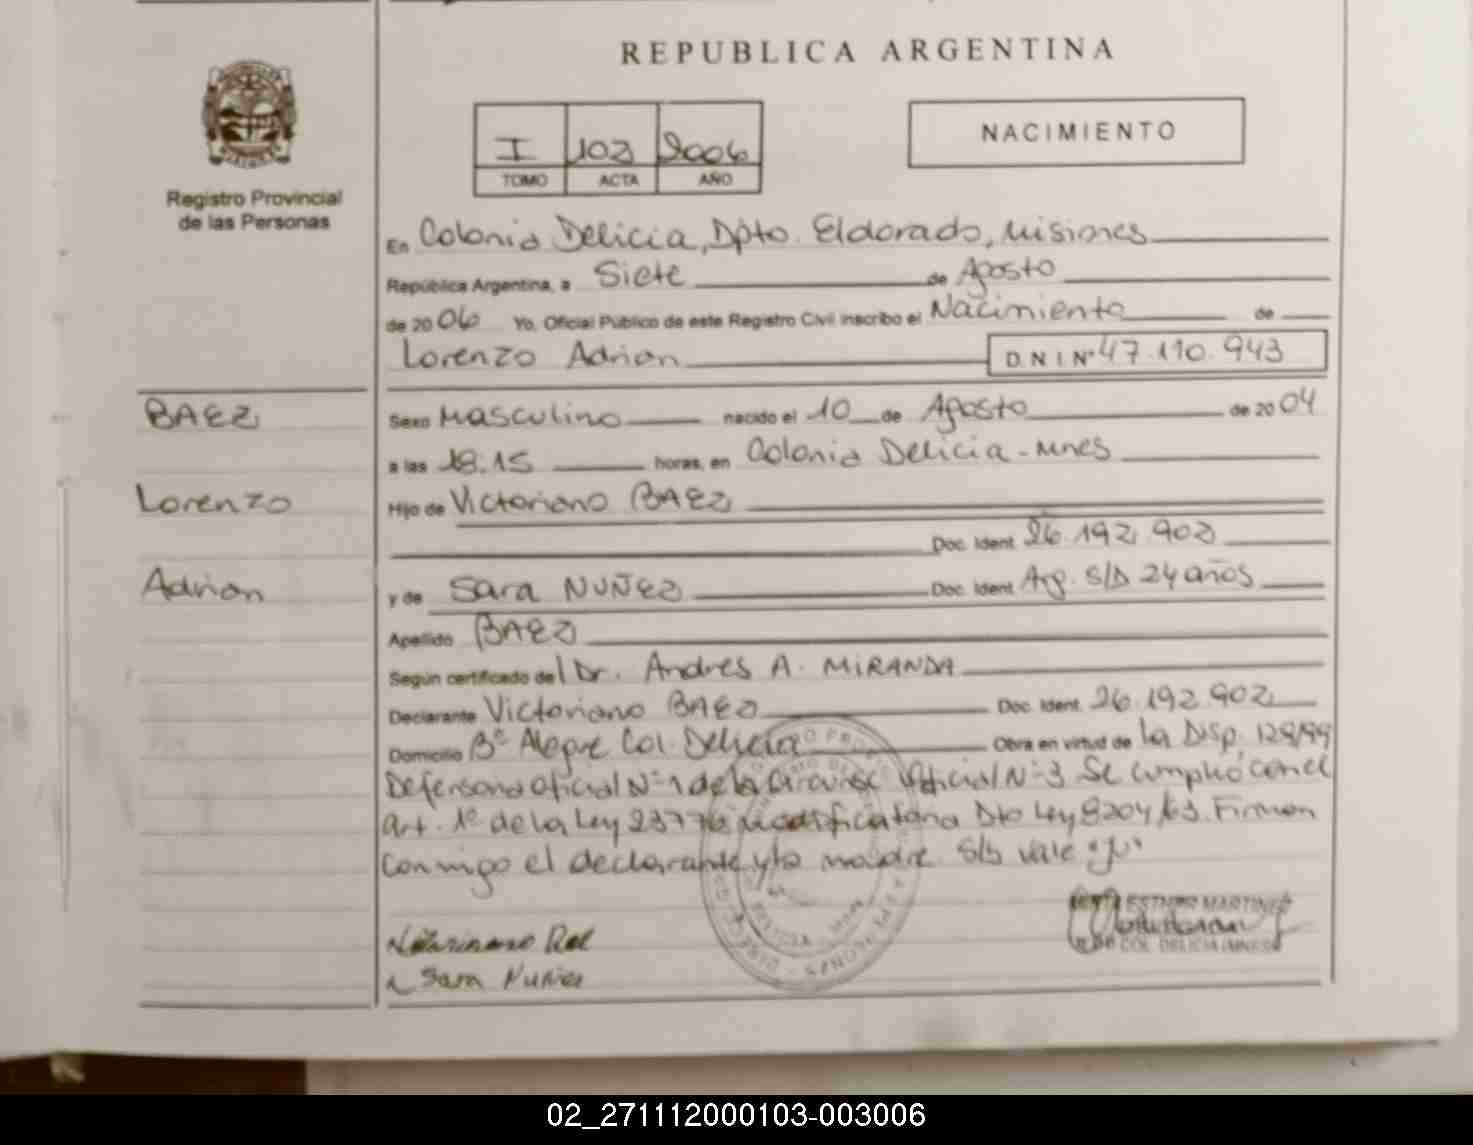 REPUBLICA ARGENTINA
I 102 2006
TOMO ACTA AÑO
NACIMIENTO
Registro Provincial
de las Personas
En Colonia Delicia, Dpto. Eldorado, Misiones
República Argentina, a Siete de Agosto
de 2006 Yo, Oficial Público de este Registro Civil inscribo el Nacimiento de
Lorenzo Adrian D.N.I Nº 47.110.943
BAEZ
Lorenzo
Adrian
Sexo Masculino nacido el 10 de Agosto de 2004
a las 18.15 horas, en Colonia Delicia - Mnes
Hijo de Victoriano BAEZ
Doc. Ident. 26.192.902
y de Sara NUÑEZ Doc. Ident. Arg. S/D 24 años
Apellido BAEZ
Según certificado del Dr. Andres A. MIRANDA
Declarante Victoriano BAEZ Doc. Ident. 26.192.902
Domicilio Bº Alegre Col. Delicia Obra en virtud de la Disp. 129/99
Defensoria Oficial Nº 1 de la Circunsc Judicial Nº 3 Se cumplió con el
art. 1º de la Ley 23776 modificatoria Dto Ley 8204/63. Firman
conmigo el declarante y la madre. S/b vale "Ju"
Sara Nuñez
ESTHER MARTINEZ
COL. DELICIA (MNES)
02_271112000103-003006